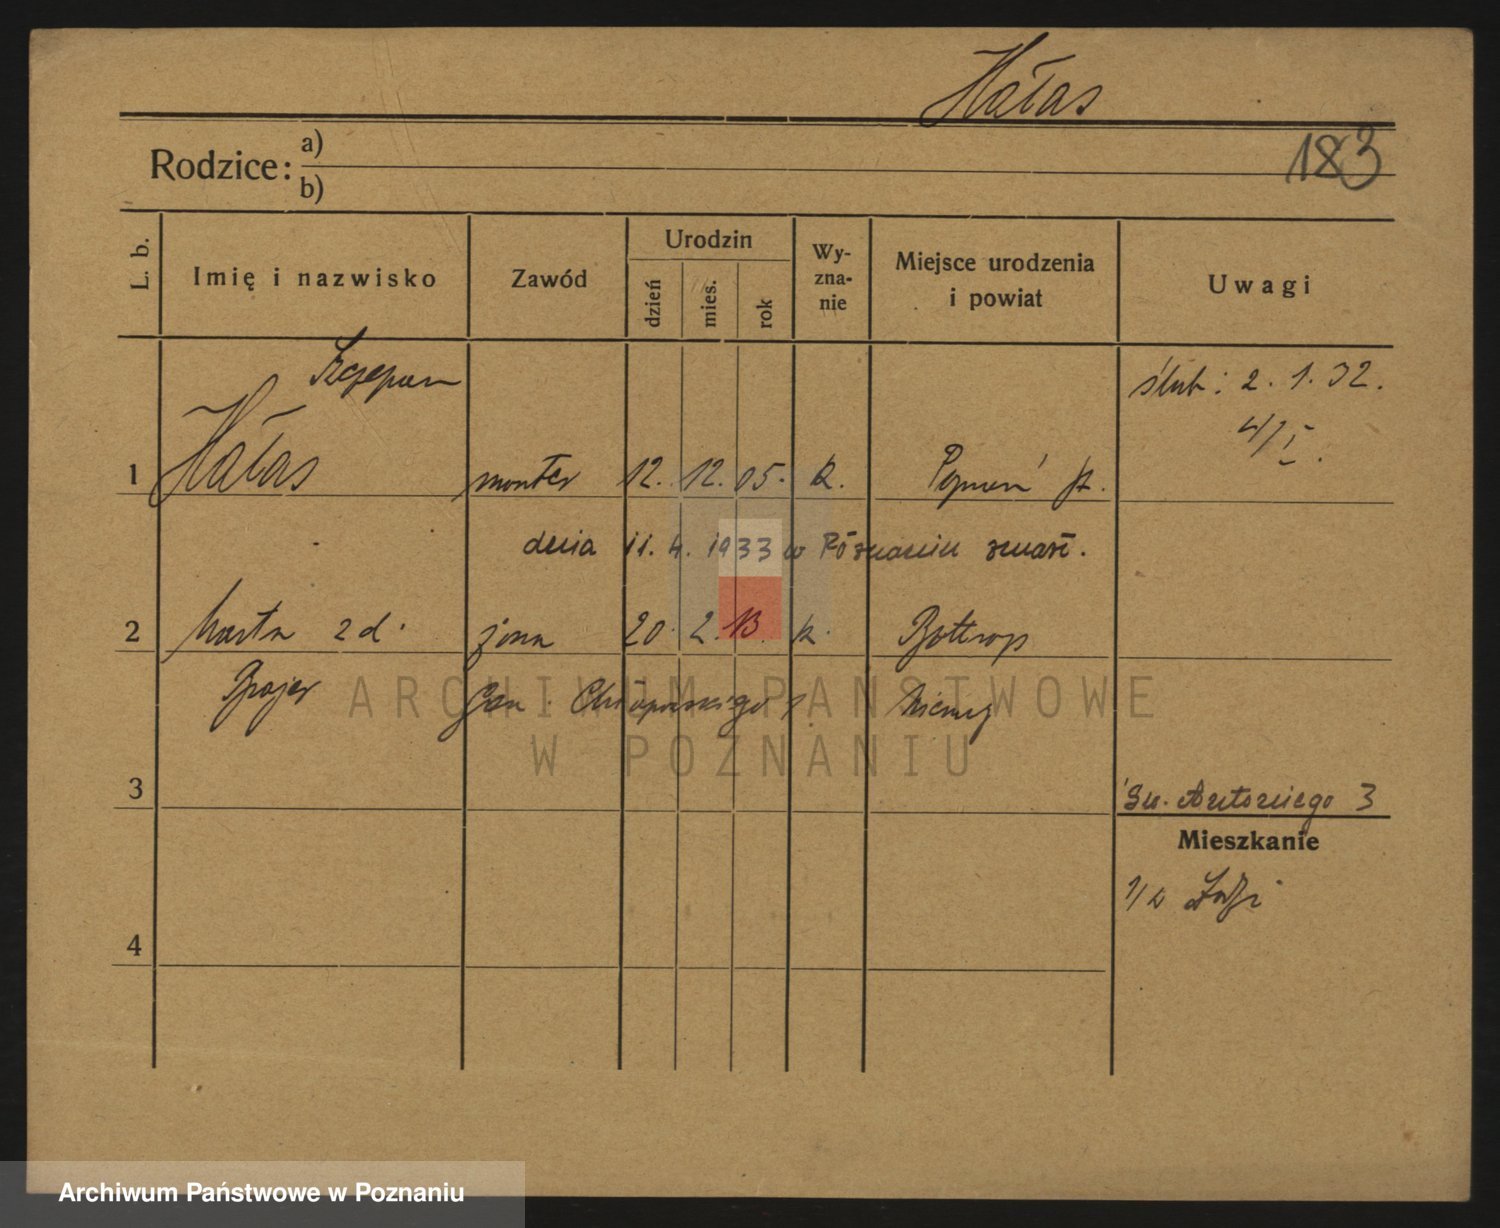 Hałas
183
Rodzice: a)
b)
L. b.
Imię i nazwisko
Zawód
Urodzin
dzień
mies.
rok
Wy-
zna-
nie
Miejsce urodzenia
i powiat
Uwagi
Szczepan
ślub: 2. 1. 32.
1 Hałas monter 12. 12. 05. k. Poznań
dnia 11. 4. 1933 w Poznaniu zmarł.
2 Marta z d. żona 20. 2. 13. k. Bottrop
Gen. Chłapowskiego Niemcy
ARCHIWUM PAŃSTWOWE
W POZNANIU
3
Św. Antoniego 3
Mieszkanie
4
Archiwum Państwowe w Poznaniu